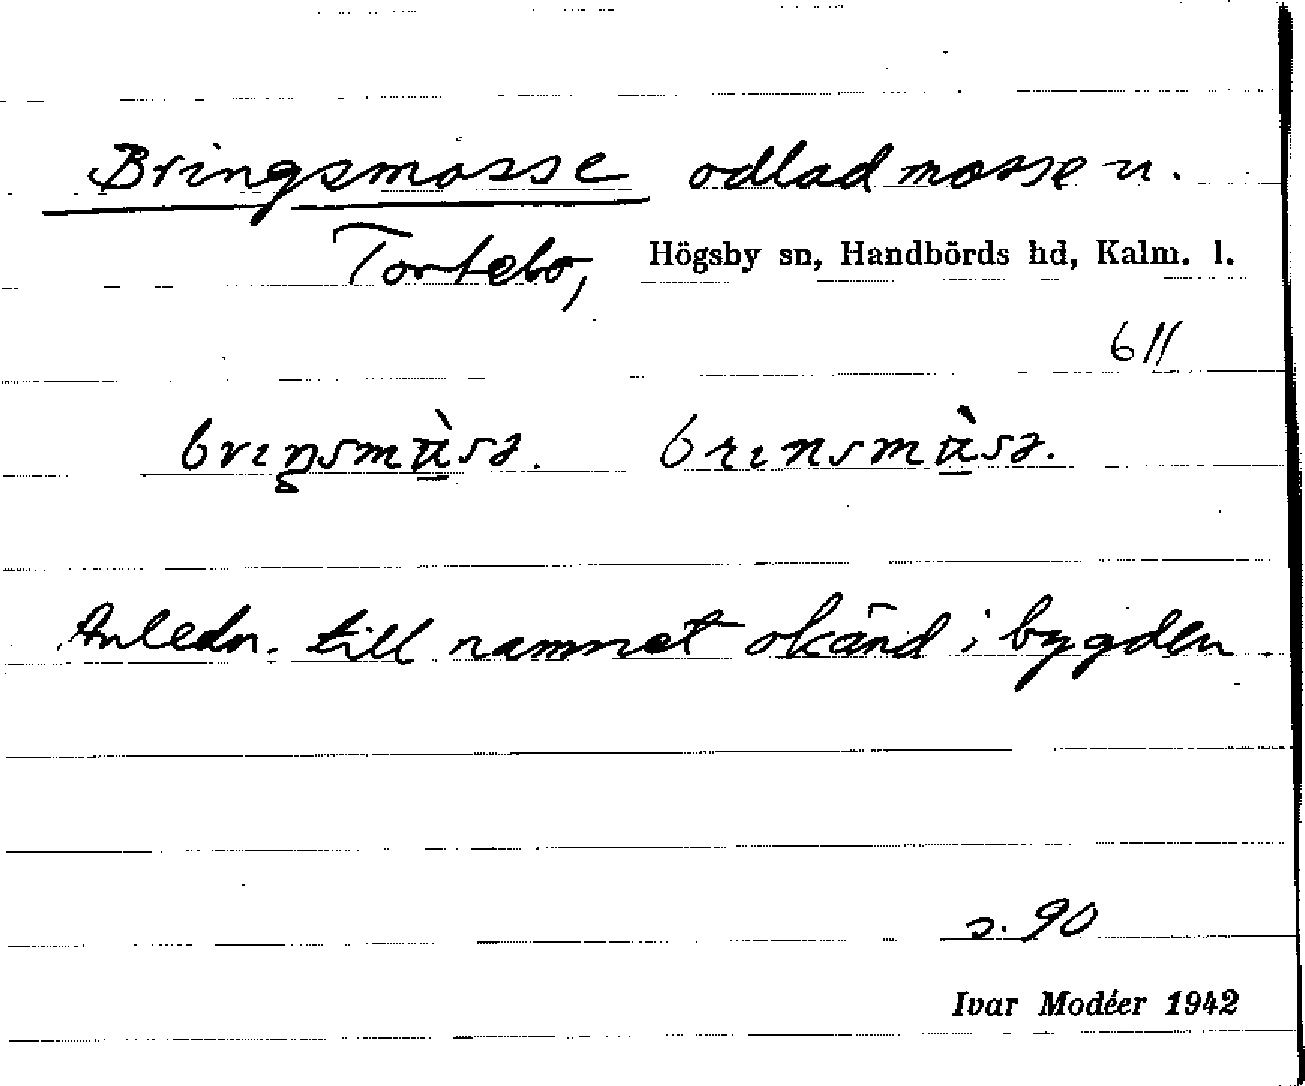 Bringsmosse odlad mosse u.
Tortebo, Högsby sn, Handbörds hd, Kalm. l.
611
Anledn. till namnet okänd i bygden.
s. 90
Ivar Modéer 1942